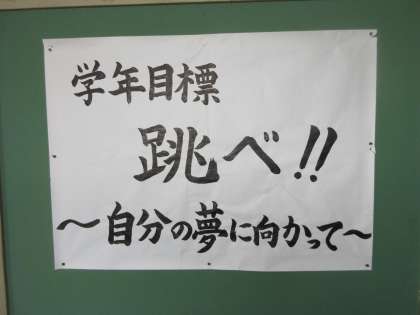 学年目標
跳べ!!
～自分の夢に向かって～